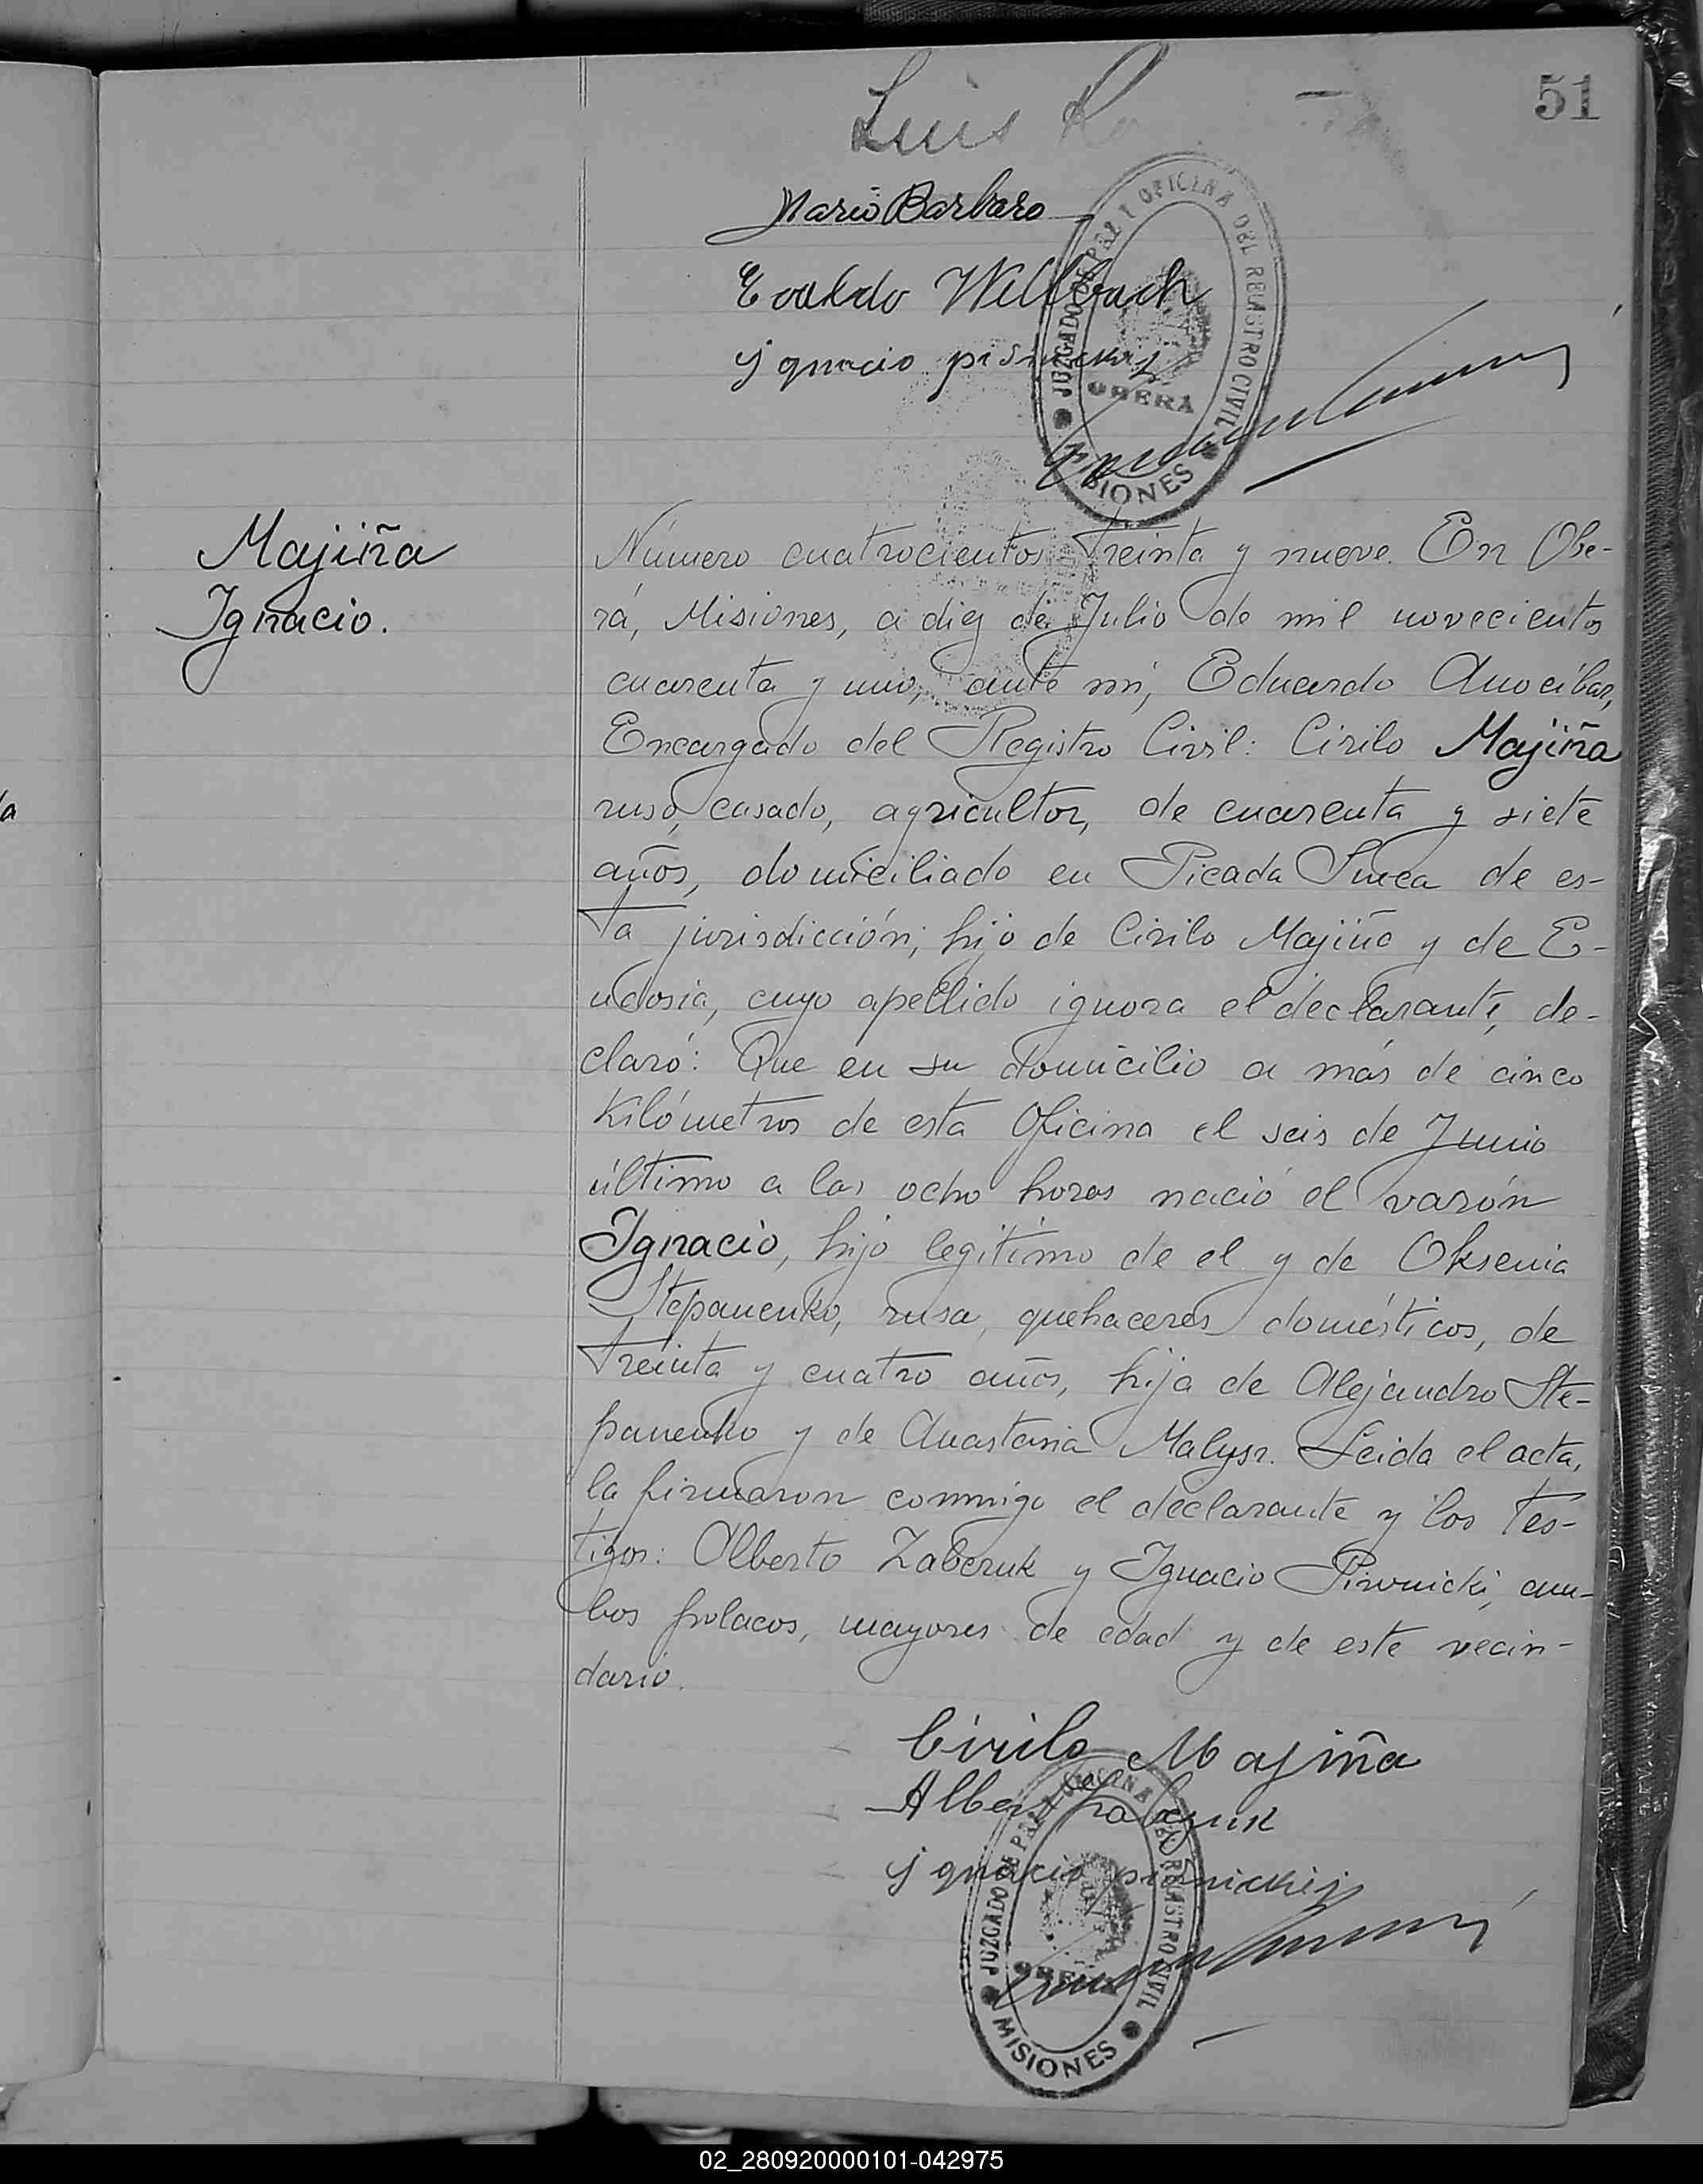 51
Luis
Mario Barbaro
Evaldo Wellbach
Ignacio
JUZGADO DE PAZ Y OFICINA DEL REGISTRO CIVIL
OBERA
MISIONES
Majiña
Ignacio.
Número cuatrocientos treinta y nueve. En Obe-
rá, Misiones, a diez de Julio de mil novecientos
cuarenta y uno, ante mí, Eduardo Anocíbar,
Encargado del Registro Civil: Cirilo Majiña
ruso, casado, agricultor, de cuarenta y siete
años, domiciliado en Picada Sueca de es-
ta jurisdicción; hijo de Cirilo Majiña y de E-
udosia, cuyo apellido ignora el declarante, de-
claró: Que en su domicilio a más de cinco
Kilómetros de esta Oficina el seis de Junio
último a las ocho horas nació el varón
Ignacio, hijo legítimo de el y de Oksenia
Stepanenko, rusa, quehaceres domésticos, de
treinta y cuatro años, hija de Alejandro Ste-
panenko y de Anastasia Malysz. Leida el acta,
la firmaron conmigo el declarante y los tes-
tigos: Alberto Zabczuk y Ignacio Pisonicki, am-
bos polacos, mayores de edad y de este vecin-
dario.
Cirilo Majiña
Albert Zabczuk
Ignacio pisnickij
JUZGADO DE PAZ Y OFICINA DEL REGISTRO CIVIL
OBERA
MISIONES
02_280920000101-042975